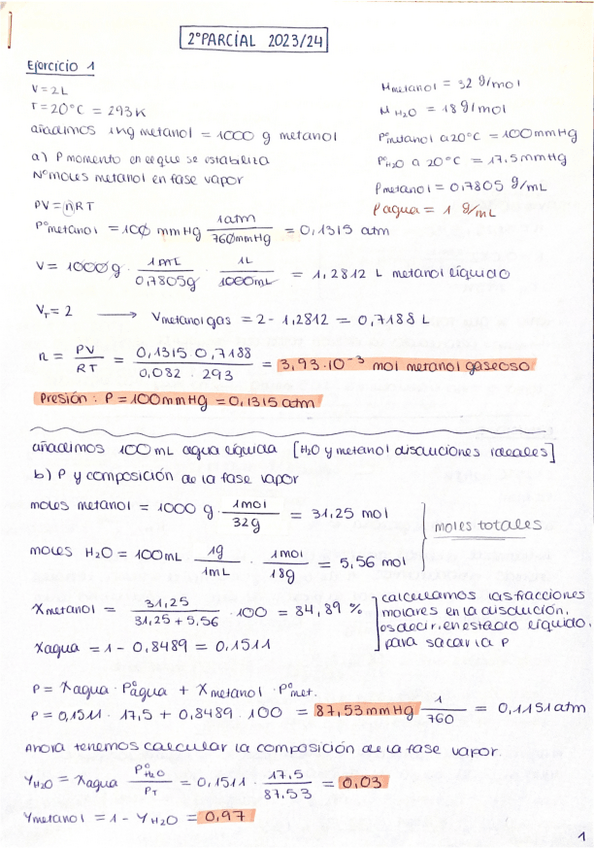 2º PARCIAL 2023/24
Ejercicio 1
V = 2L
T = 20ºC = 293K
añadimos 1kg metanol = 1000 g metanol
a) P momento en el que se estabiliza
Nº moles metanol en fase vapor
M metanol = 32 g/mol
M H2O = 18 g/mol
Pº metanol a 20ºC = 100 mmHg
Pº H2O a 20ºC = 17.5 mmHg
ρ metanol = 0,7805 g/mL
ρ agua = 1 g/mL
PV = nRT
Pº metanol = 100 mmHg 1atm / 760mmHg = 0,1315 atm
V = 1000g · 1mL / 0,7805g · 1L / 1000mL = 1,2812 L metanol líquido
VT = 2 → V metanol gas = 2 - 1,2812 = 0,7188 L
n = PV / RT = 0,1315 · 0,7188 / 0,082 · 293 = 3,93·10⁻³ mol metanol gaseoso
Presión: P = 100 mmHg = 0,1315 atm
añadimos 100 mL agua líquida [H2O y metanol disoluciones ideales]
b) P y composición de la fase vapor
moles metanol = 1000 g · 1mol / 32g = 31,25 mol
moles H2O = 100mL · 1g / 1mL · 1mol / 18g = 5,56 mol
moles totales
X metanol = 31,25 / 31,25 + 5,56 · 100 = 84,89 %
X agua = 1 - 0,8489 = 0,1511
calculamos las fracciones
molares en la disolución,
es decir, en estado líquido,
para sacar la P
P = X agua · Pº agua + X metanol · Pº met.
P = 0,1511 · 17,5 + 0,8489 · 100 = 87,53 mmHg 1 / 760 = 0,1151 atm
Ahora tenemos calcular la composición de la fase vapor.
Y H2O = X agua Pº H2O / PT = 0,1511 · 17,5 / 87.53 = 0,03
Y metanol = 1 - Y H2O = 0,97
1